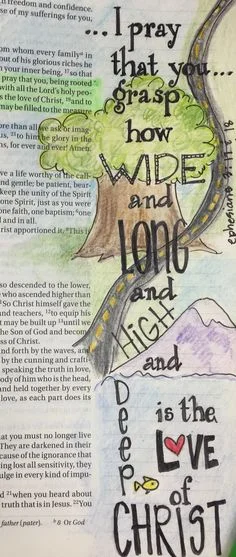 ...I pray
that you...
grasp
how
WIDE
and
LONG
and
HIGH
and
Deep
is the
LOVE
of
CHRIST
n freedom and confidence.
se of my sufferings for you,
om whom every family
in
out of his glorious riches he
n your inner being, 17 so that
pray that you, being rooted
with all the Lord's holy peo-
s the love of Christ, 19 and to
may be filled to the measure
ore than all we ask or imag-
us, 21 to him be glory in the
ns, for ever and ever! Amen.
ve a life worthy of the call-
and gentle; be patient, bear-
keep the unity of the Spirit
one Spirit, just as you were
one faith, one baptism; 6 one
l and in all.
rist apportioned it. 8 This is
so descended to the lower,
who ascended higher than
So Christ himself gave the
and teachers, 12 to equip his
t may be built up 13 until we
the Son of God and become
ss of Christ.
and forth by the waves, and
by the cunning and craft-
speaking the truth in love,
ody of him who is the head,
and held together by every
love, as each part does its
at you must no longer live
They are darkened in their
cause of the ignorance that
ing lost all sensitivity, they
ulge in every kind of impu-
d 21 when you heard about
truth that is in Jesus. 22 You
father (pater).
b 8 Or God